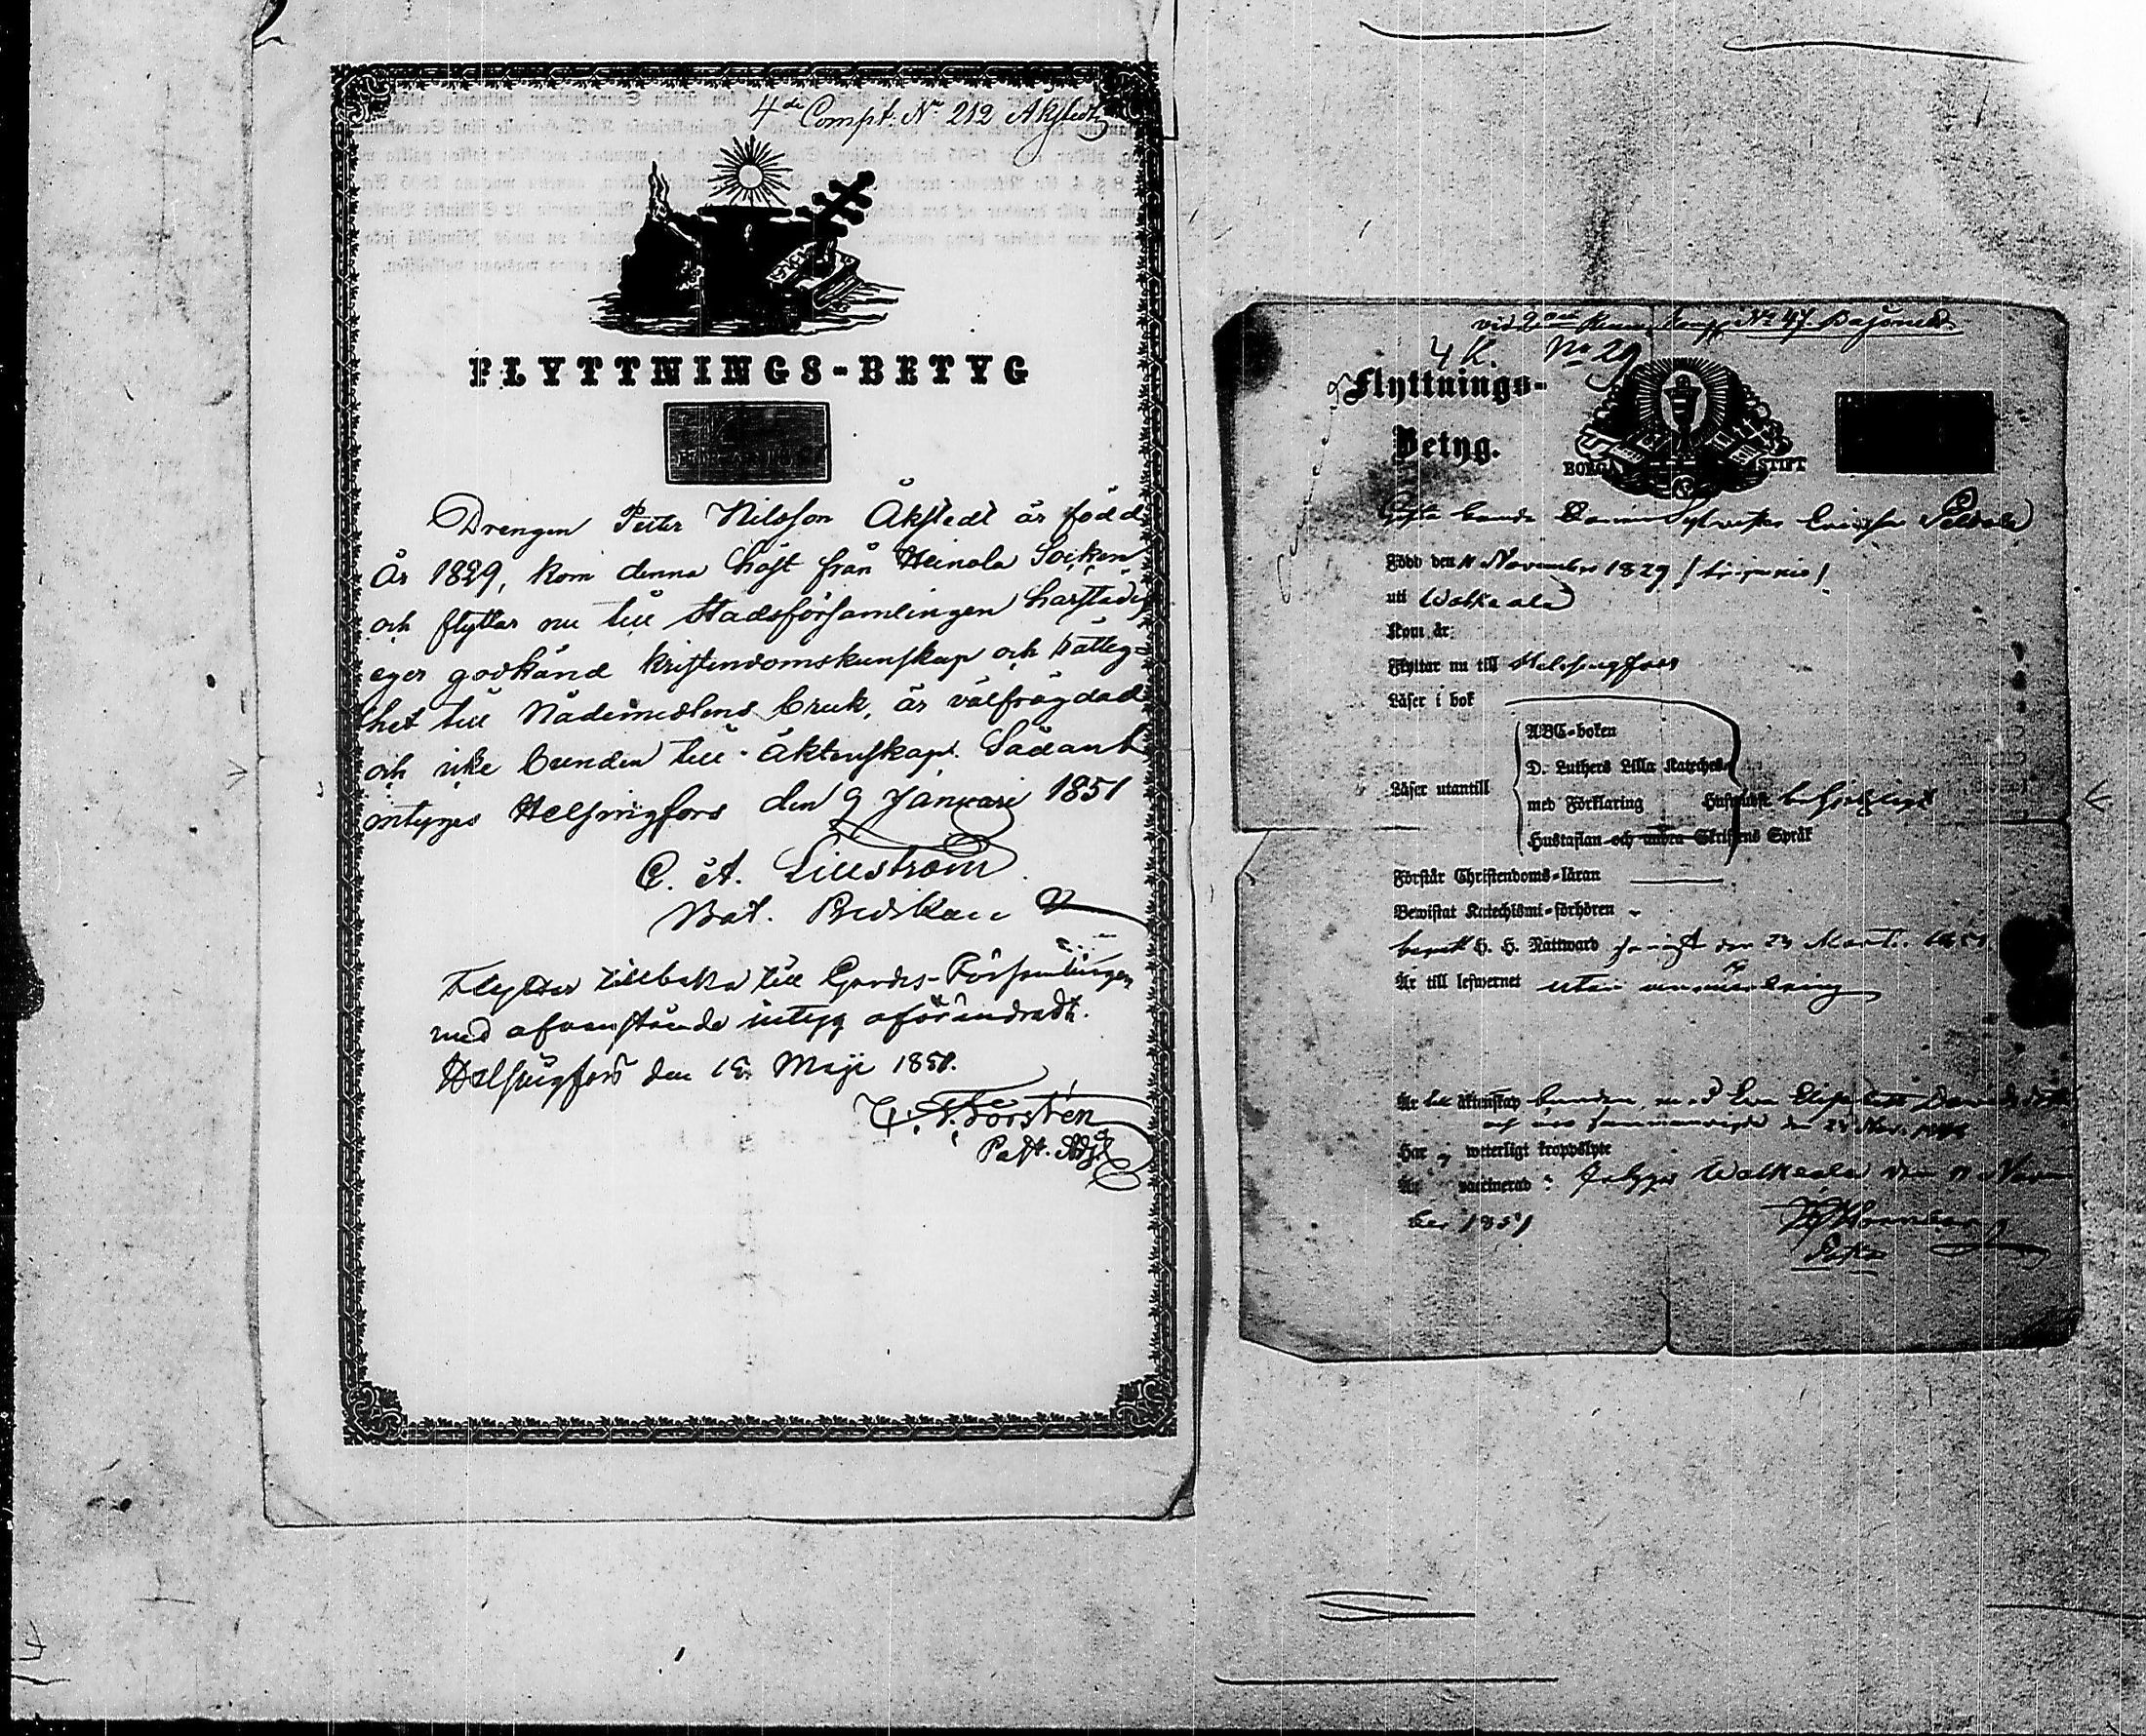 4de Comp. No 212 Åkstedt
FLYTTNINGS-BETYG
Drengen Petter Nilsson Åkstedt är född
År 1829, kom denna höst från Heinola Socken
och flyttar nu till Stadsförsamlingen härstädes
eger godkänd kristendomskunskap och rättig-
het till Nådemedlens bruk, är välfrägdad
och icke bunden till äktenskap. Sådant
intygas Helsingfors den 9 Januari 1851
C. A. Lillström
Bat. Predikant
Flyttar tillbaka till Gardes-Församlingen
med ofvanstående intyg oförändradt.
Helsingfors den 15 Maji 1851.
Forstén
Past. Adj.
No 47
4 K. No 29
Flyttnings-
Betyg.
BORGÅ STIFT
Född den 11 November 1829
uti Walkeala
Kom år
Flyttar nu till Helsingfors
Läser i bok
ABC-boken
D. Luthers Lilla Kateches
Läser utantill
med Förklaring
Hustaflan och andra Skriftens Språk
Förstår Christendoms-läran
Bewistat Katechismi-förhören
H. H. Nattward den 23
Är till lefwernet utan anmärkning
Är till äktenskap bunden med Eva Elisabeth Davidsdotter
Har ej weterligt kroppslyte
Är vaccinerad: Intygar Walkeala den 11 Novem
ber 1851